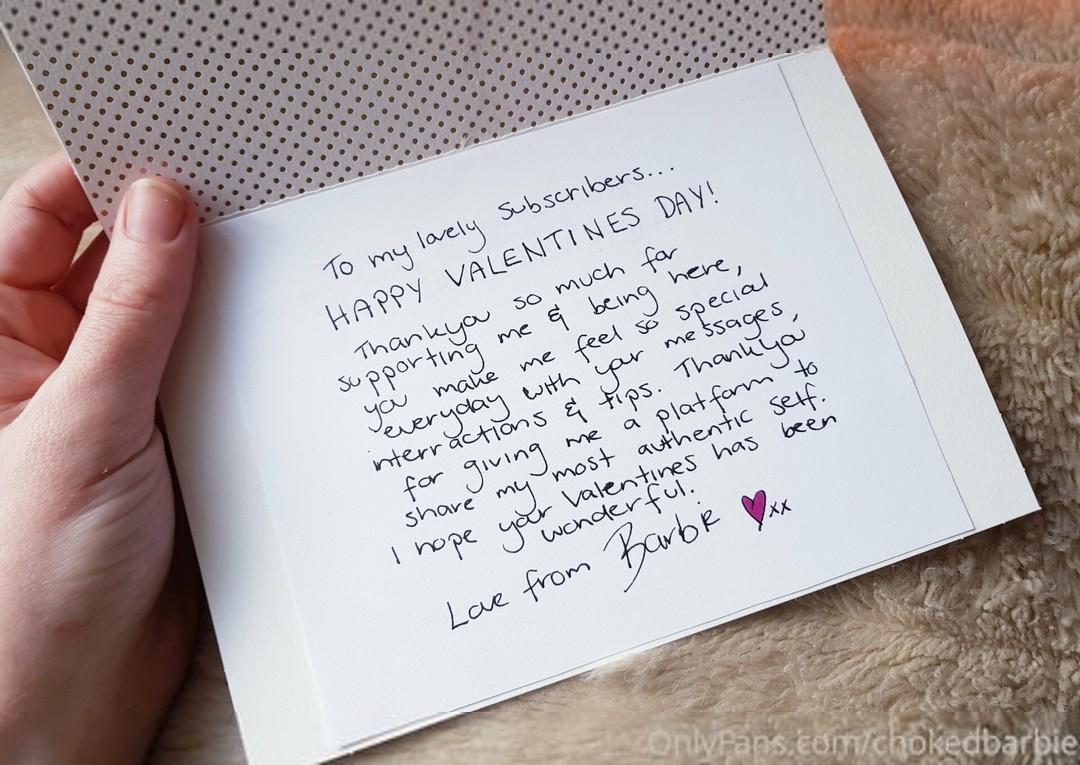 To my lovely subscribers...
HAPPY VALENTINES DAY!
Thankyou so much for
supporting me & being here,
you make me feel so special
everyday with your messages,
interractions & tips. Thankyou
for giving me a platform to
share my most authentic self.
I hope your Valentines has been
wonderful.
Love from Barbie xx
OnlyFans.com/chokedbarbie